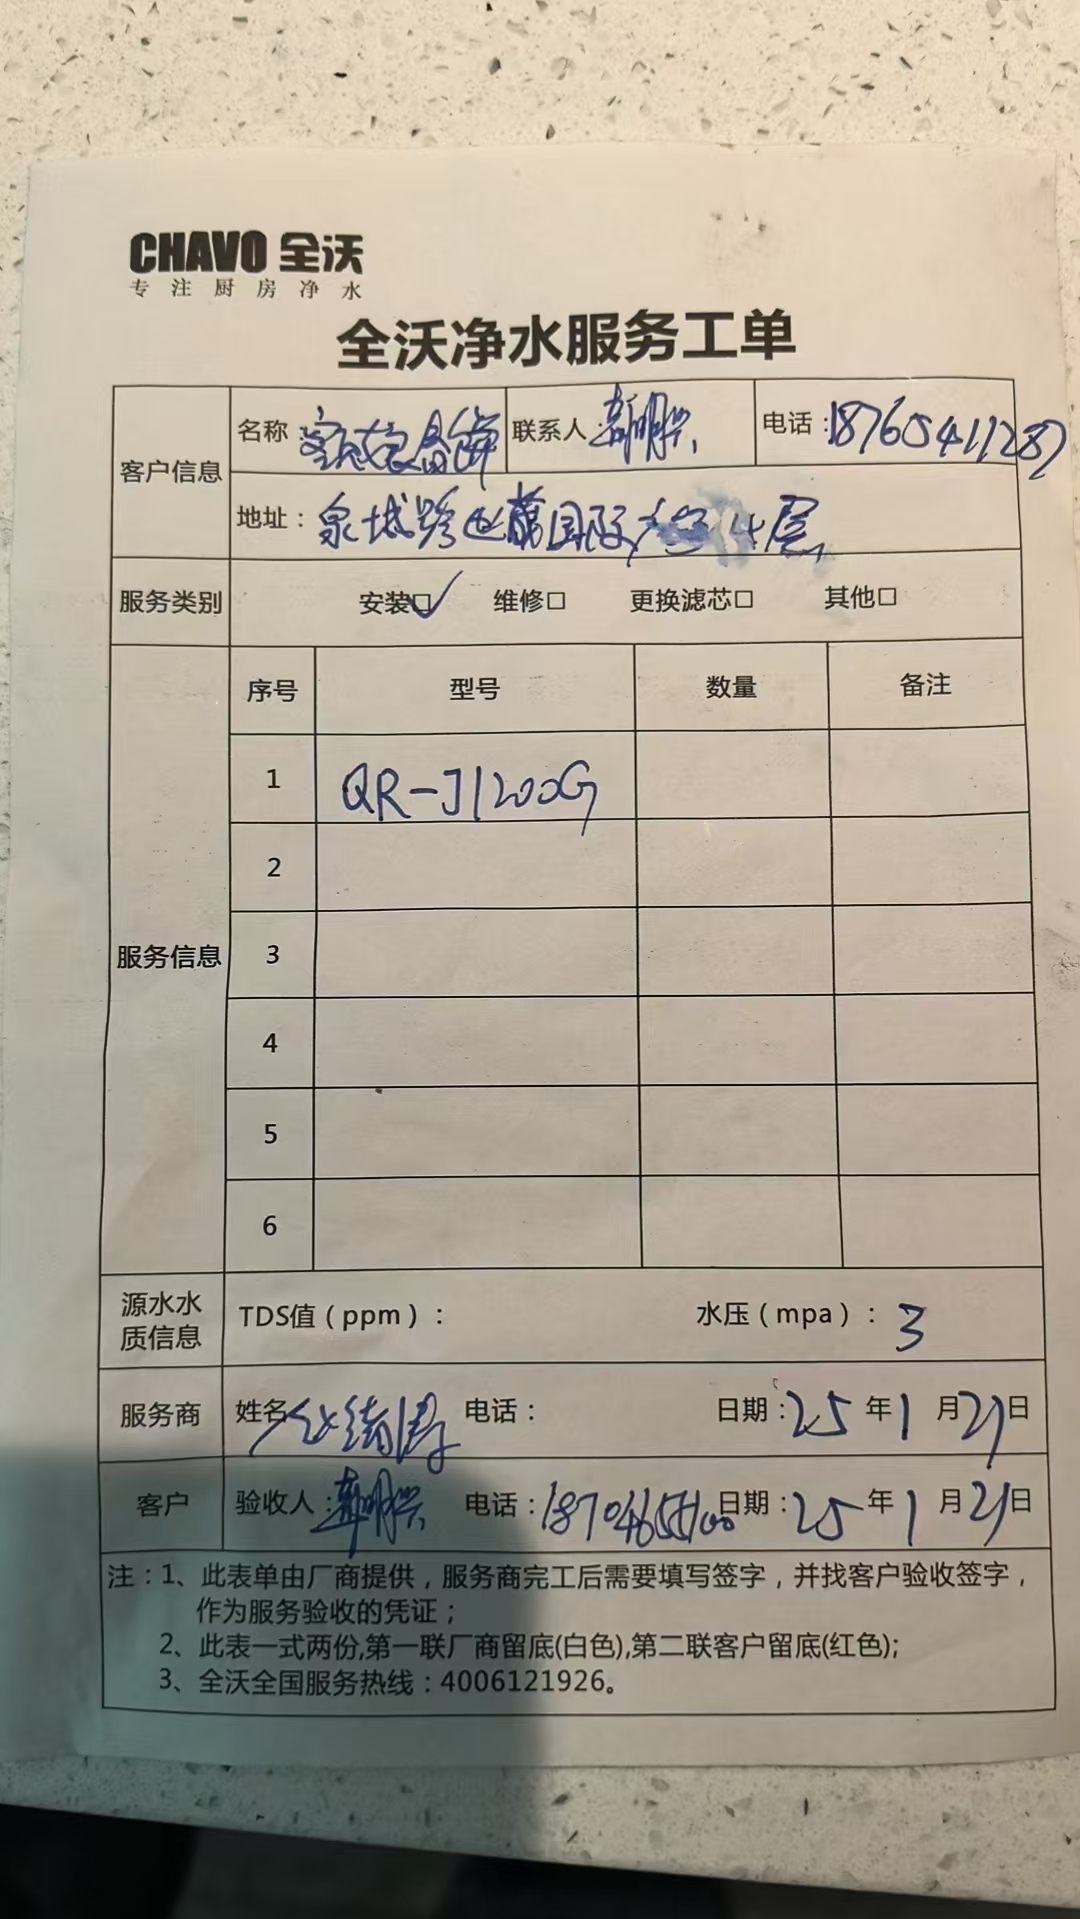 CHAVO 全沃
专注厨房净水
全沃净水服务工单
客户信息
名称
联系人
电话：18765411287
地址：泉城路 国际 14层
服务类别
安装☑ 维修□ 更换滤芯□ 其他□
服务信息
序号 型号 数量 备注
1 QR-J1200G
2
3
4
5
6
源水水质信息
TDS值（ppm）： 水压（mpa）：3
服务商
姓名 电话： 日期：25年1月21日
客户
验收人： 电话： 日期：25年1月21日
注：1、此表单由厂商提供，服务商完工后需要填写签字，并找客户验收签字，
作为服务验收的凭证；
2、此表一式两份,第一联厂商留底(白色),第二联客户留底(红色);
3、全沃全国服务热线：4006121926。